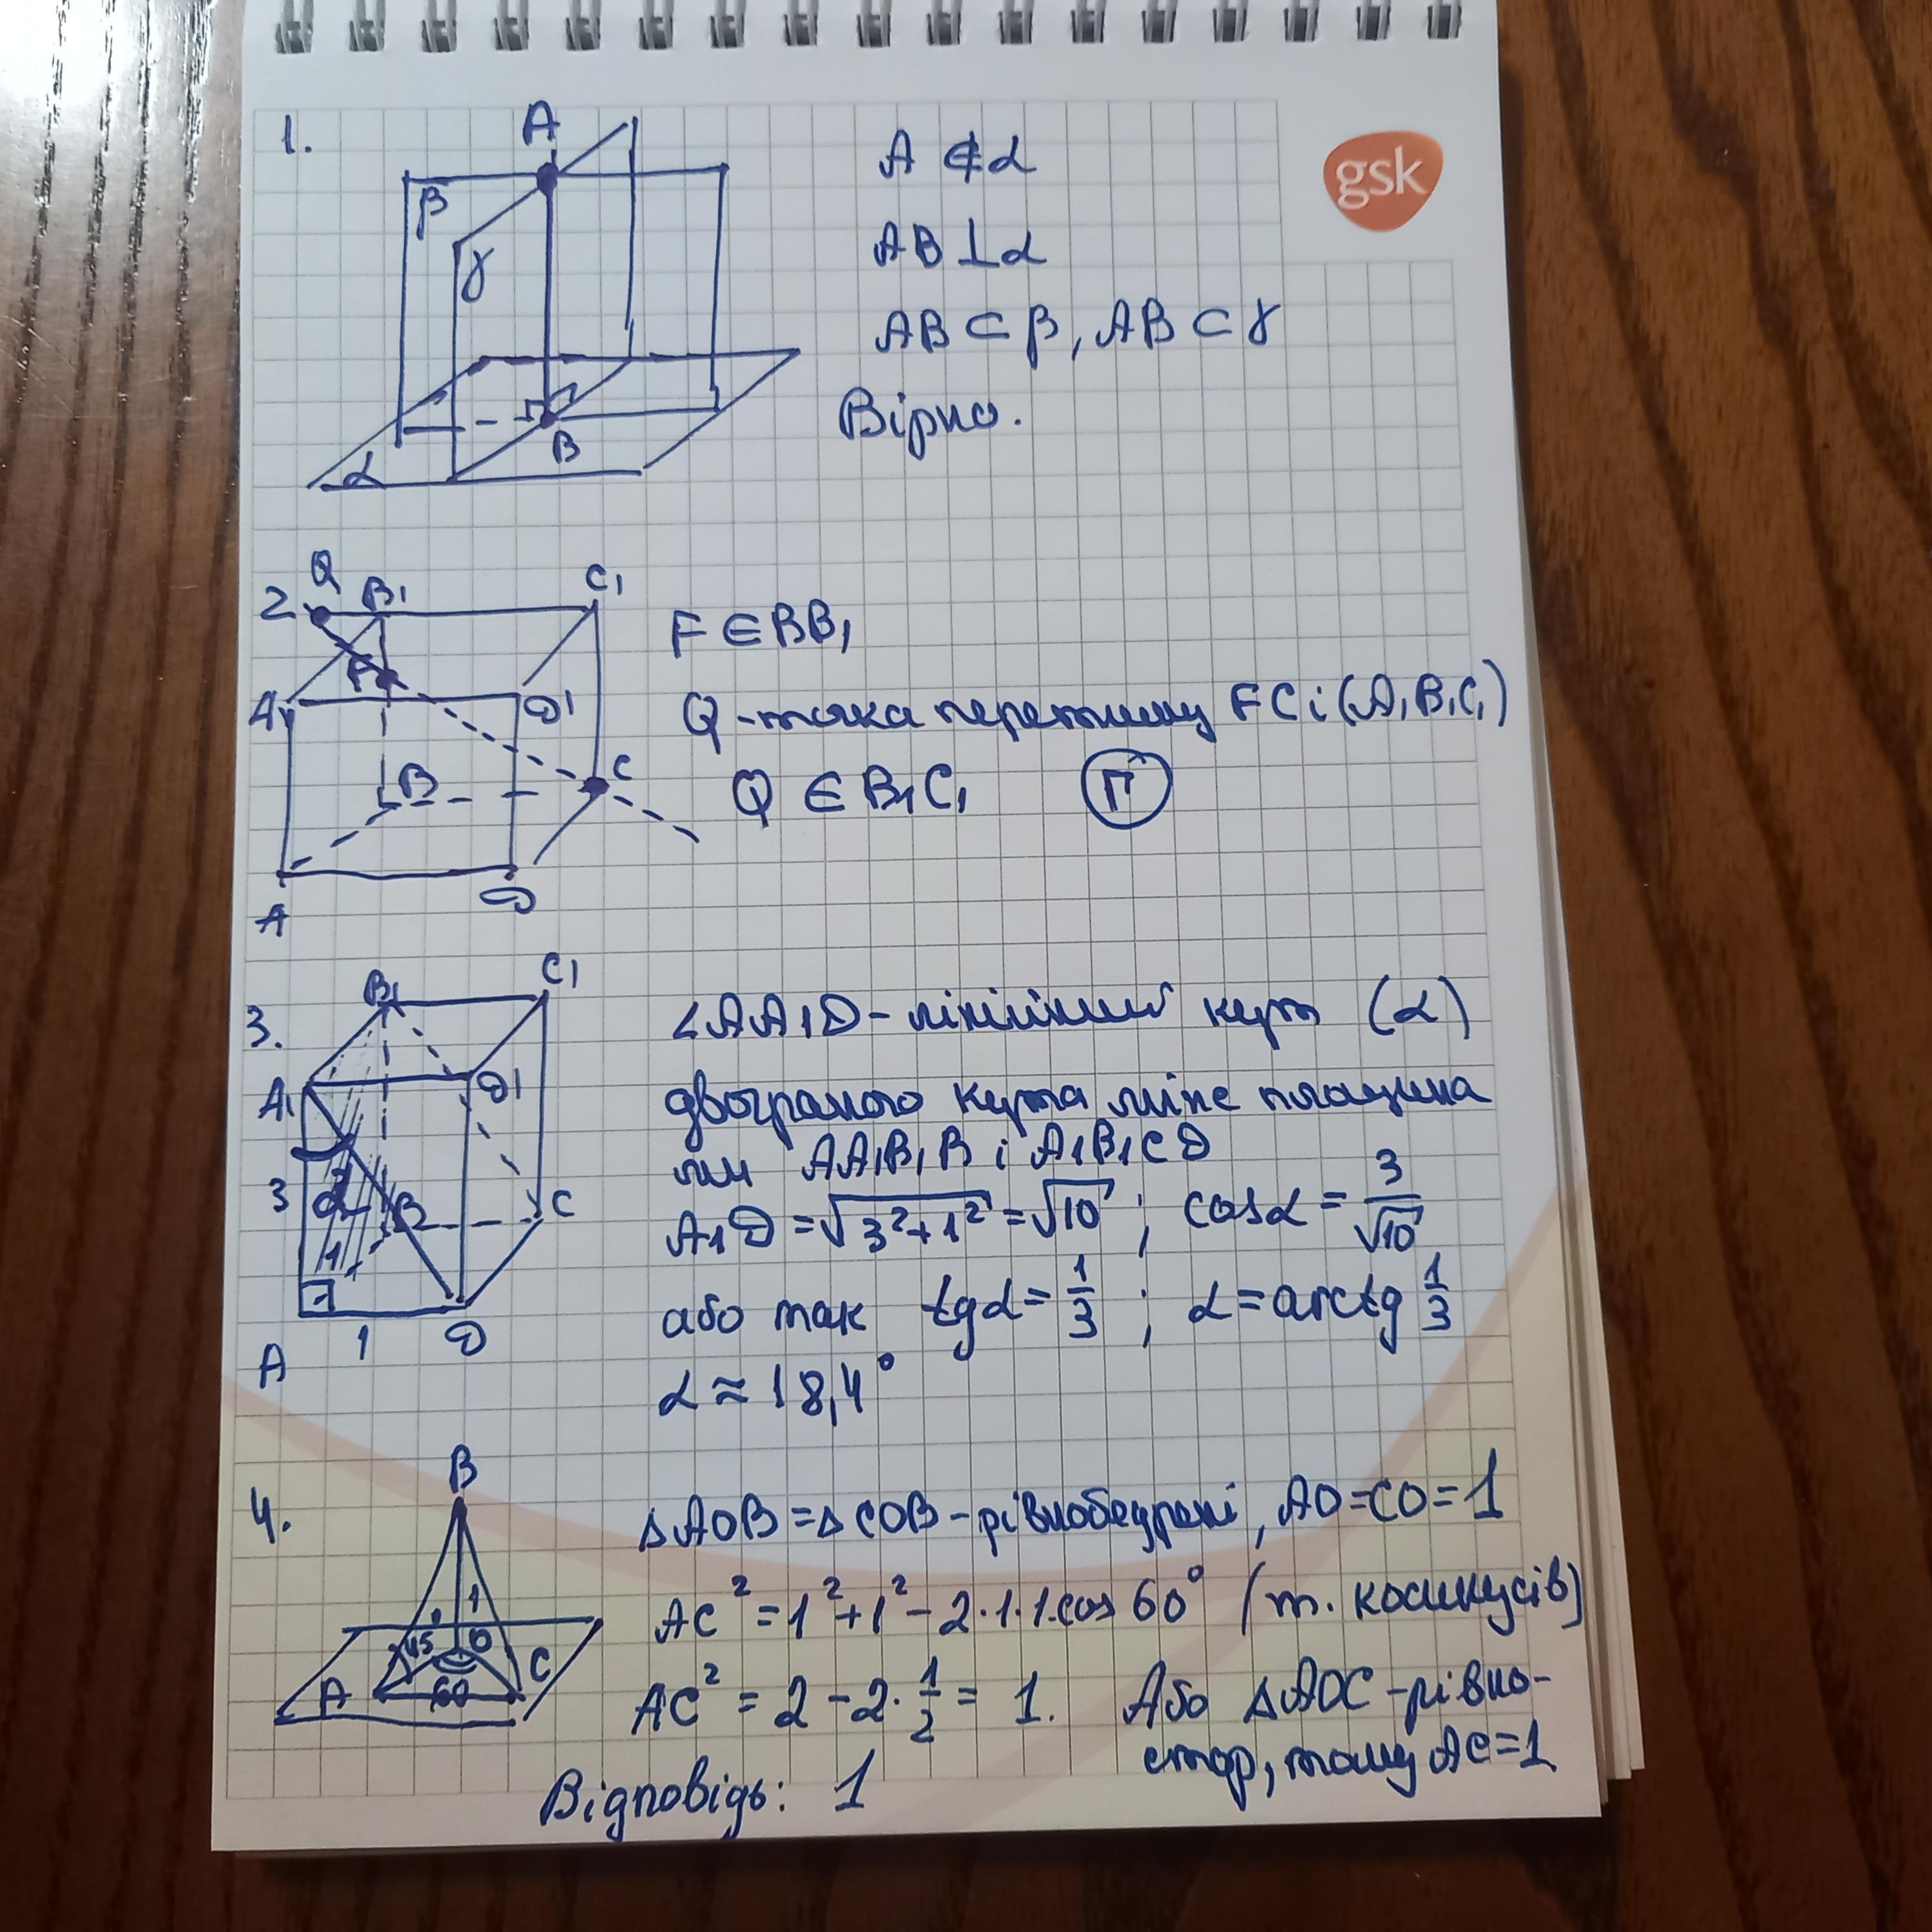 gsk
1.
A
β
γ
B
α
A ∉ α
AB ⊥ α
AB ⊂ β, AB ⊂ γ
Вірно.
2
Q
B₁
C₁
F
A₁
D₁
B
C
A
D
F ∈ BB₁
Q - точка перетину FC і (A₁B₁C₁)
Q ∈ B₁C₁ Г
3.
B₁
C₁
A₁
D₁
3
α
B
C
1
A
D
∠AA₁D - лінійний кут (α)
двогранного кута між площина
ми AA₁B₁B і A₁B₁CD
A₁D = √3²+1² = √10 ; cosα = 3/√10
або так tgα = 1/3 ; α = arctg 1/3
α ≈ 18,4°
4.
B
1
45
O
A
60
C
△AOB = △COB - рівнобедрені, AO = CO = 1
AC² = 1² + 1² - 2·1·1·cos 60° (т. косинусів)
AC² = 2 - 2·1/2 = 1. Або △AOC - рівно-
стор, тому AC = 1
Відповідь: 1